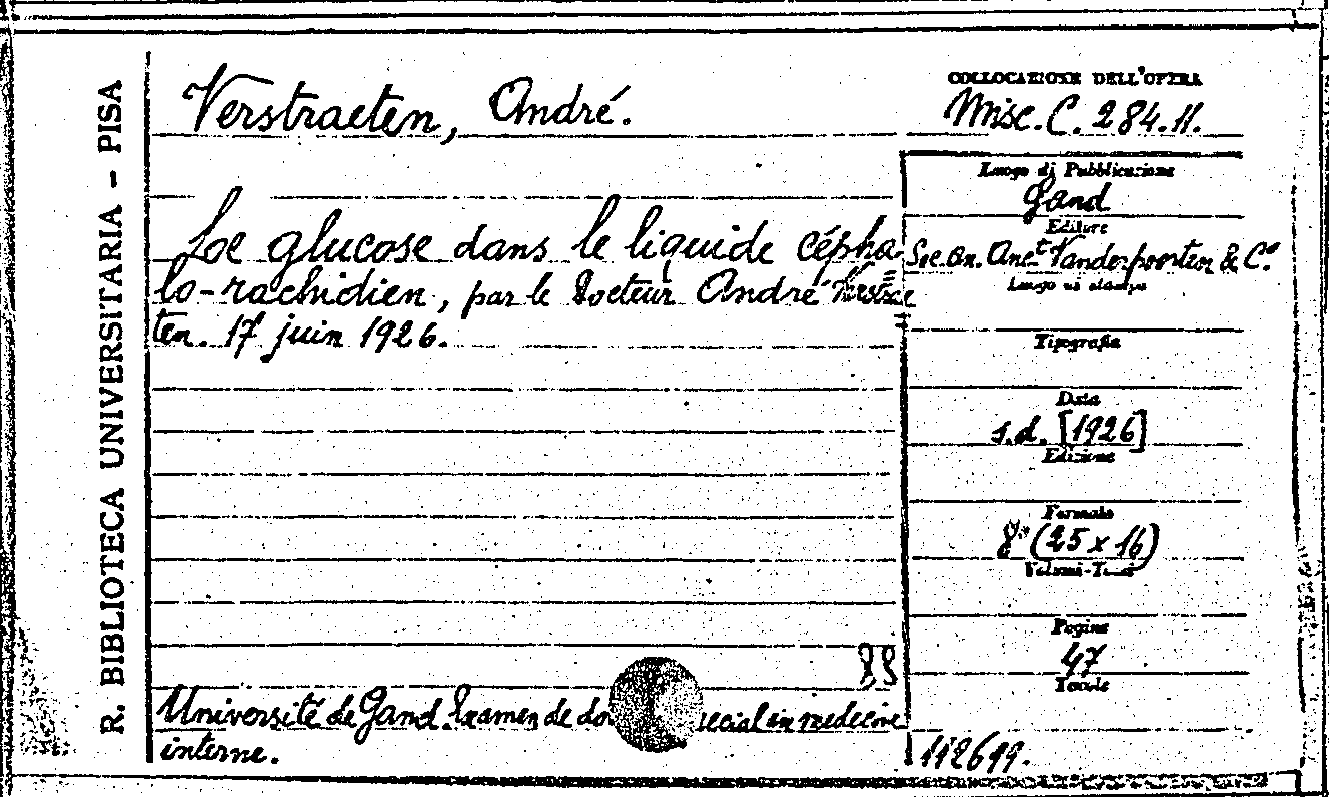 R. BIBLIOTECA UNIVERSITARIA - PISA
Verstraeten, André.
Le glucose dans le liquide cépha
lo-rachidien, par le Docteur André Verstrae
ten. 17 juin 1926.
88
Université de Gand. Examen de do ecial en médecine
interne.
COLLOCAZIONE DELL'OPERA
Misc. C. 284. 11.
Luogo di Pubblicazione
Gand
Editore
Soc. An. Anct Vanderpoorten & Co
Luogo di stampa
Tipografia
Data
s.d. [1926]
Edizione
Formato
8° (25 x 16)
Volumi-Tomi
Pagine
47
Tavole
112699.